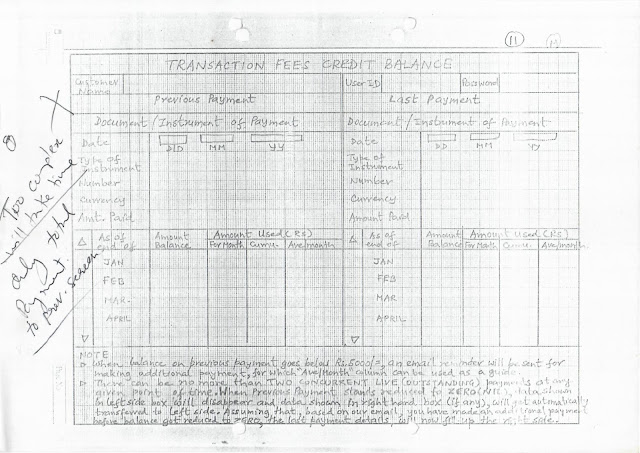 11
TRANSACTION FEES CREDIT BALANCE
Customer Name
User ID
Password
Previous Payment
Last Payment
Document/Instrument of Payment
Document/Instrument of Payment
Date
DD MM YY
Date
DD MM YY
Type of Instrument
Type of Instrument
Number
Number
Currency
Currency
Amt. Paid
Amount Paid
As of end of
Amount Balance
Amount Used (RS)
For Month Cumu. Ave/month
As of end of
Amount Balance
Amount Used (RS)
For Month Cumu. Ave/month
JAN
JAN
FEB
FEB
MAR.
MAR
APRIL
APRIL
NOTE
When balance on previous payment goes below Rs.5000/=, an email reminder will be sent for
making additional payment, for which "Ave/Month" column can be used as a guide.
There can be no more than TWO CONCURRENT LIVE (OUTSTANDING) payments at any
given point of time. When Previous Payment stands reduced to ZERO (NIL), data shown
in leftside box will disappear and data shown in right hand box (if any), will get automatically
transferred to left side. Assuming that, based on our email, you have made an additional payment
before balance got reduced to ZERO, the last payment details will now fill up the right side.
Too complex
will take time
only total
Payment
to Prev. screen